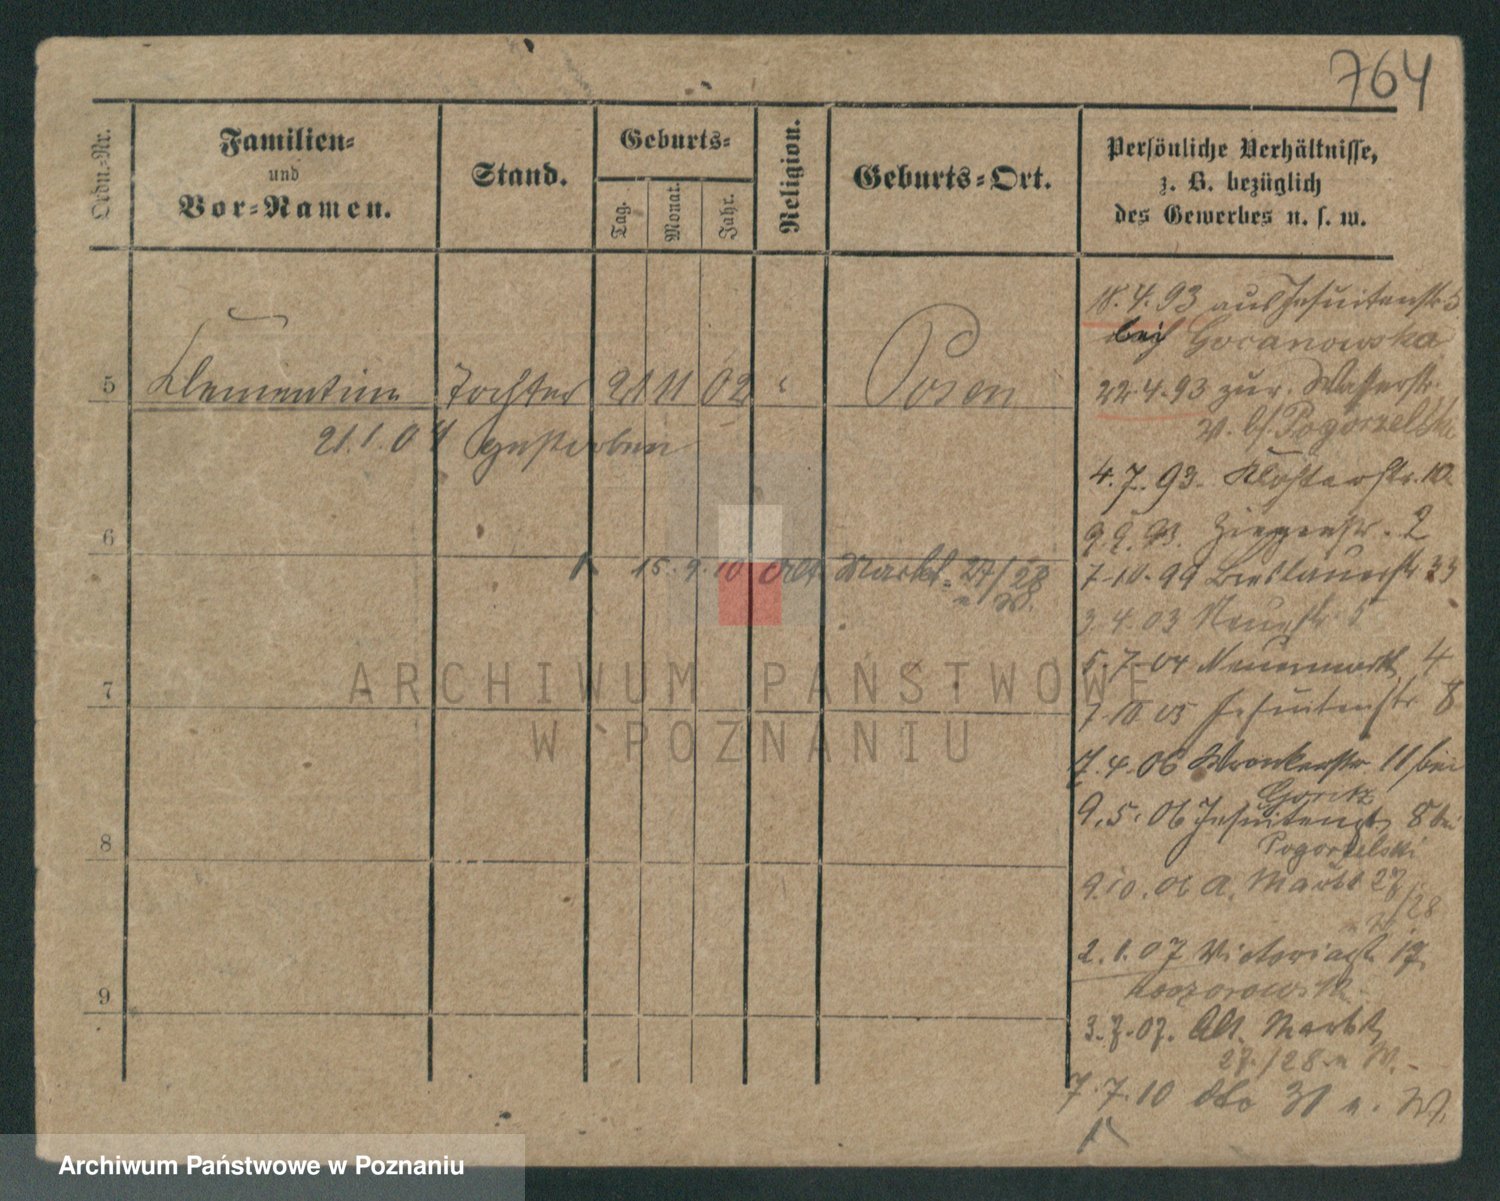 764
Ordn.-Nr.
Familien-
und
Vor-Namen.
Stand.
Geburts-
Tag.
Monat.
Jahr.
Religion.
Geburts-Ort.
Persönliche Verhältnisse,
z. B. bezüglich
des Gewerbes u. s. w.
5 Klementine Tochter 21 11 02 " Posen
21.1.04 gestorben
6
15.9.10 Alt. Markt 27/28
W.
7
8
9
18.4.93 aus Jesuitenstr 5
bei Goranowska
22.4.93 zur. Wasserstr.
b/ Pogorzelski
4.7.93. Klosterstr. 10.
9.9.93. Ziegenstr. 2
7-10.99 Breslauerstr 33
3.4.03 Neuestr 5
5.7.04 Neuenmarkt 4
7.10.05 Jesuitenstr 8
7.4.06 Wronkerstr 11 bei
Goritz
9.5.06 Jesuitenstr 8 bei
Pogorzelski
9.10.06 A. Markt 27
/28
2.1.07 Victoriastr. 17
3.7.07. Alt. Markt
27./28. W.
7.7.10 dto 31 W.
ARCHIWUM PAŃSTWOWE
W POZNANIU
Archiwum Państwowe w Poznaniu